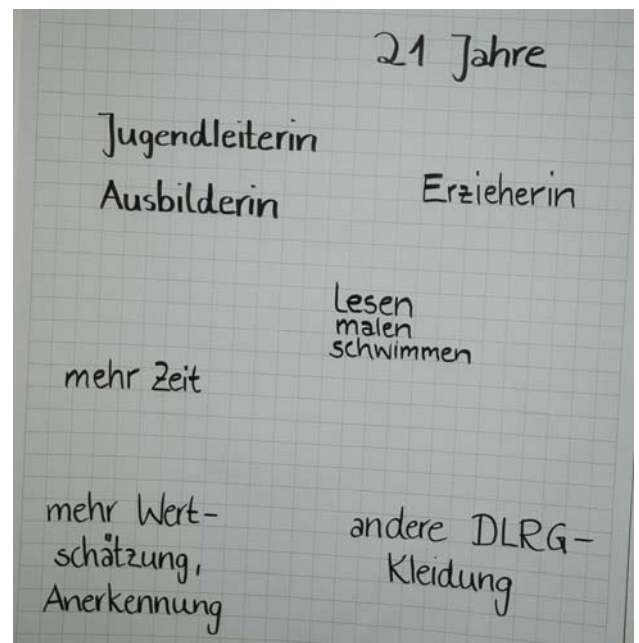 21 Jahre
Jugendleiterin
Ausbilderin
Erzieherin
Lesen
malen
schwimmen
mehr Zeit
mehr Wert-
schätzung,
Anerkennung
andere DLRG-
Kleidung